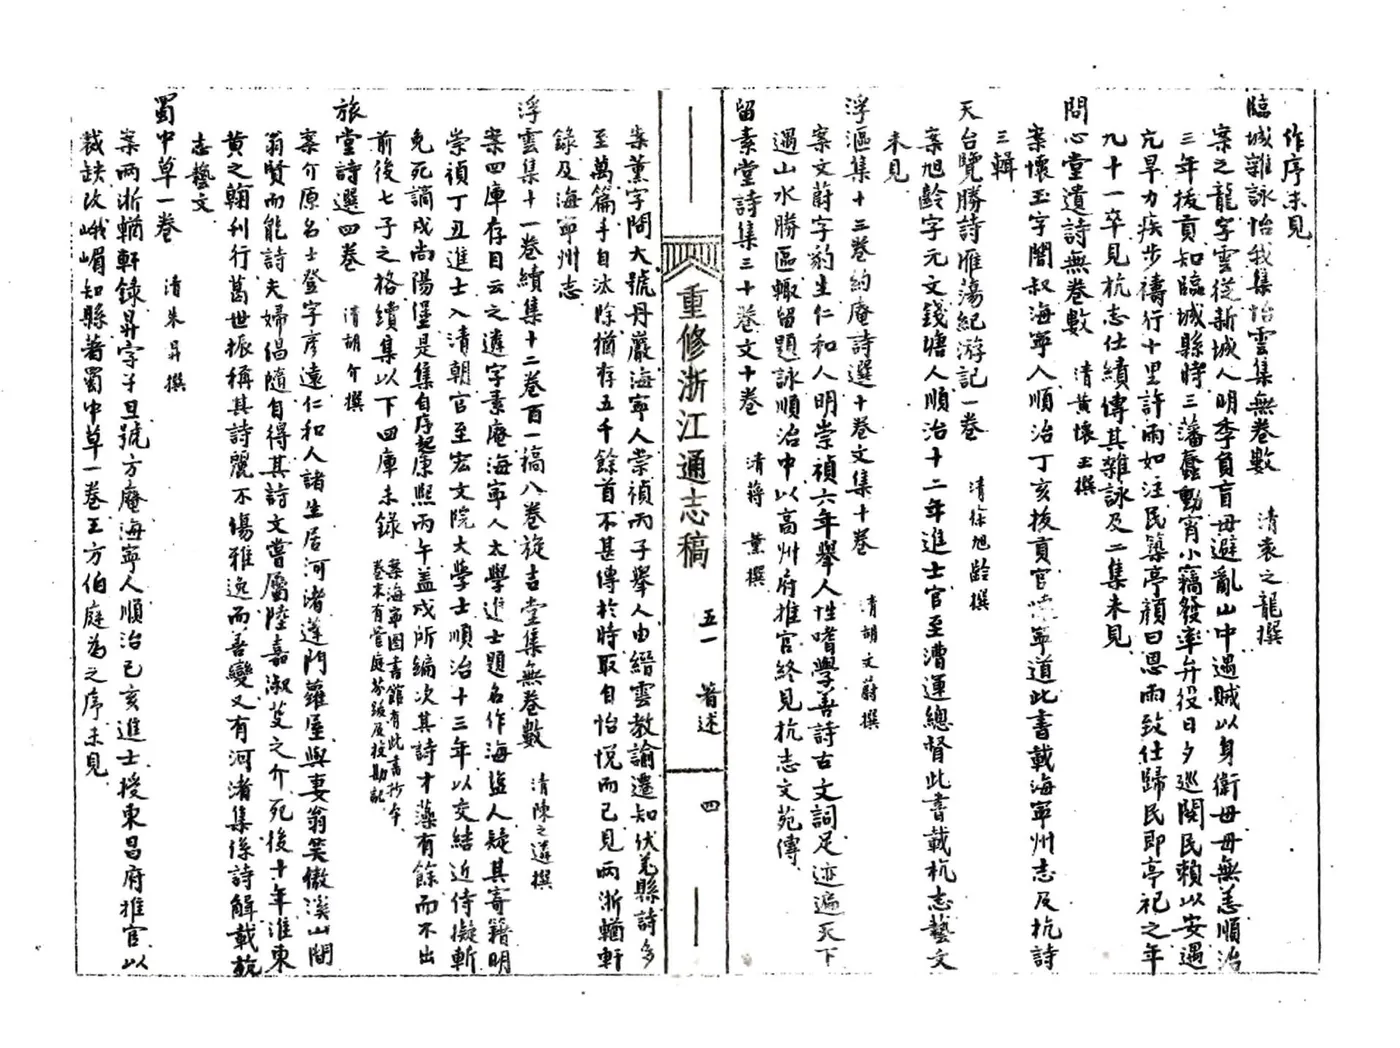 作序未見
臨城雜詠怡我集怡雲集無卷數 清袁之龍撰
案之龍字雲從新城人明季負盲母避亂山中遇賊以身衛母母無恙順治
三年拔貢知臨城縣時三藩蠢動宵小竊發率弁役日夕巡閱民賴以安遇
亢旱力疾步禱行十里許雨如注民築亭顏曰恩雨致仕歸民即亭祀之年
九十一卒見杭志仕績傳其雜詠及二集未見
問心堂遺詩無卷數 清黃懷玉撰
案懷玉字闇叔海寧人順治丁亥拔貢官 寧道此書載海寧州志及杭詩
三輯
天台覽勝詩雁蕩紀游記一卷 清徐旭齡撰
案旭齡字元文錢塘人順治十二年進士官至漕運總督此書載杭志藝文
未見
浮漚集十三卷約庵詩選十卷文集十卷 清胡文蔚撰
案文蔚字豹生仁和人明崇禎六年舉人性嗜學善詩古文詞足迹遍天下
遇山水勝區輒留題詠順治中以高州府推官終見杭志文苑傳
留素堂詩集三十卷文十卷 清蔣薰撰
重修浙江通志稿 五一 著述 四
案薰字聞大號丹巖海寧人崇禎丙子舉人由縉雲教諭遷知伏羌縣詩多
至萬篇手自汰除猶存五千餘首不甚傳於時取自怡悅而已見兩浙輶軒
錄及海寧州志
浮雲集十一卷續集十二卷百一稿八卷旋吉堂集無卷數 清陳之遴撰
案四庫存目云之遴字素庵海寧人太學進士題名作海盐人疑其寄籍明
崇禎丁丑進士入清朝官至宏文院大學士順治十三年以交結近侍擬斬
免死謫戍尚陽堡是集自序起康熙丙午蓋戍所編次其詩才藻有餘而不出
前後七子之格續集以下四庫未錄 案海寧圖書館有此書抄本
卷末有管庭芬跋及校勘記
旅堂詩選四卷 清胡介撰
案介原名士登字彥遠仁和人諸生居河渚蓬門蘿屋與妻翁笑傲溪山間
翁賢而能詩夫婦倡隨自得其詩文嘗屬陸嘉淑芟之介死後十年淮東
黃之翰刊行葛世振稱其詩麗不傷雅逸而善變又有河渚集係詩解載杭
志藝文
蜀中草一卷 清朱昇撰
案兩浙輶軒錄昇字子旦號方庵海寧人順治己亥進士授東昌府推官以
裁缺改峨嵋知縣著蜀中草一卷王方伯庭為之序未見